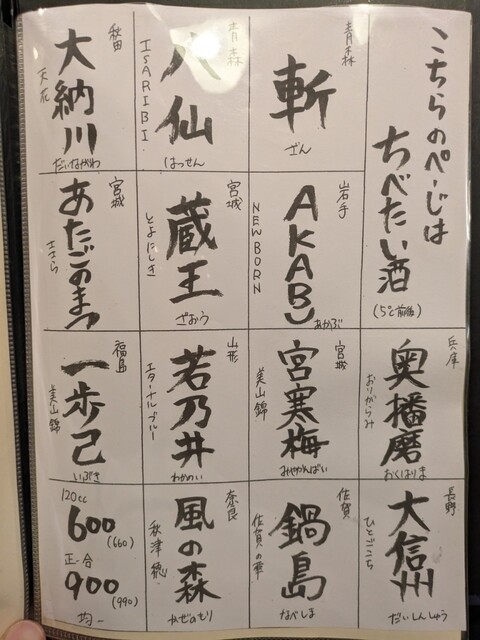 こちらのページは
ちべたい酒
(5℃前後)
青森
斬
ざん
青森
八仙
ISARIBI
はっせん
秋田
大納川
天花
だいながわ
岩手
AKABU
NEWBORN
あかぶ
宮城
蔵王
とよにしき
ざおう
宮城
あたごのまつ
ささら
兵庫
奥播磨
おりがらみ
おくはりま
宮城
宮寒梅
美山錦
みやかんばい
山形
若乃井
エターナルブルー
わかのい
福島
一歩己
美山錦
いぶき
長野
大信州
ひとごこち
だいしんしゅう
佐賀
鍋島
佐賀の華
なべしま
奈良
風の森
秋津穂
かぜのもり
120cc
600(660)
正一合
900(990)
均一